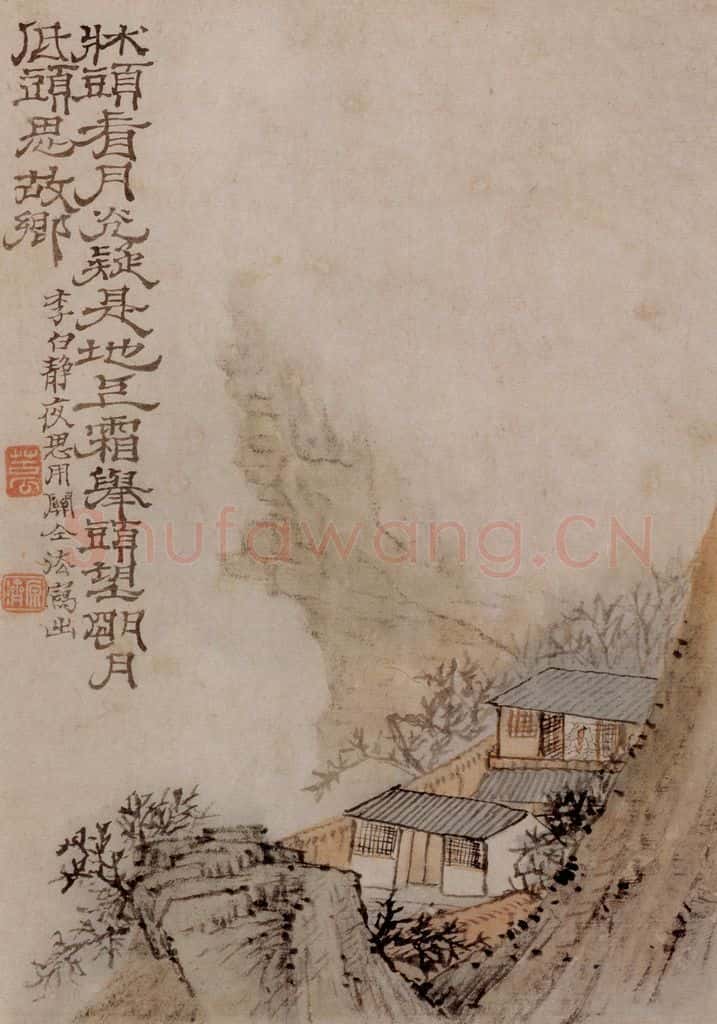 牀頭看月光疑是地上霜舉頭望朙月
低頭思故鄉
李白靜夜思用關仝法寫出
苦瓜
原濟
Shufawang.CN